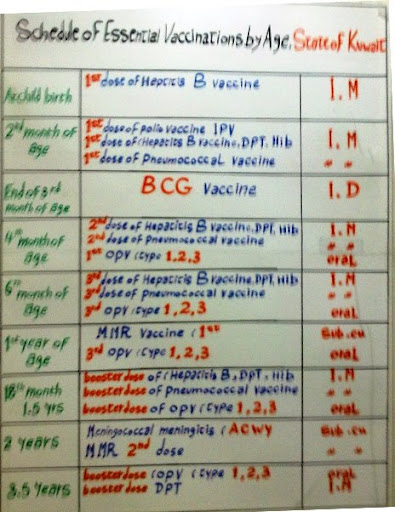 Schedule of Essential Vaccinations by Age. State of Kuwait
At child birth
1st dose of Hepatitis B vaccine
I.M
2nd month of age
1st dose of polio vaccine IPV
1st dose of (Hepatitis B vaccine, DPT, Hib
1st dose of Pneumococcal vaccine
I.M
" "
End of 3rd month of age
BCG Vaccine
I.D
4th month of age
2nd dose of Hepatitis B vaccine, DPT, Hib
2nd dose of Pneumococcal vaccine
1st OPV (type 1,2,3
I.M
" "
oral
6th month of age
3rd dose of Hepatitis B vaccine, DPT, Hib
3rd dose of pneumococcal vaccine
3rd OPV (type 1,2,3
I.M
" "
oral
1st year of Age
MMR Vaccine (1st
3rd OPV (type 1,2,3
Sub.cu
oral
18th month
1,5 yrs
booster dose of (Hepatitis B, DPT, Hib
booster dose of pneumococcal vaccine
booster dose of OPV (type 1,2,3
I.M
" "
oral
2 years
Meningococcal meningitis (ACWY
MMR 2nd dose
Sub.cu
" "
3.5 Years
booster dose (OPV (type 1,2,3
booster dose DPT
oral
I.M